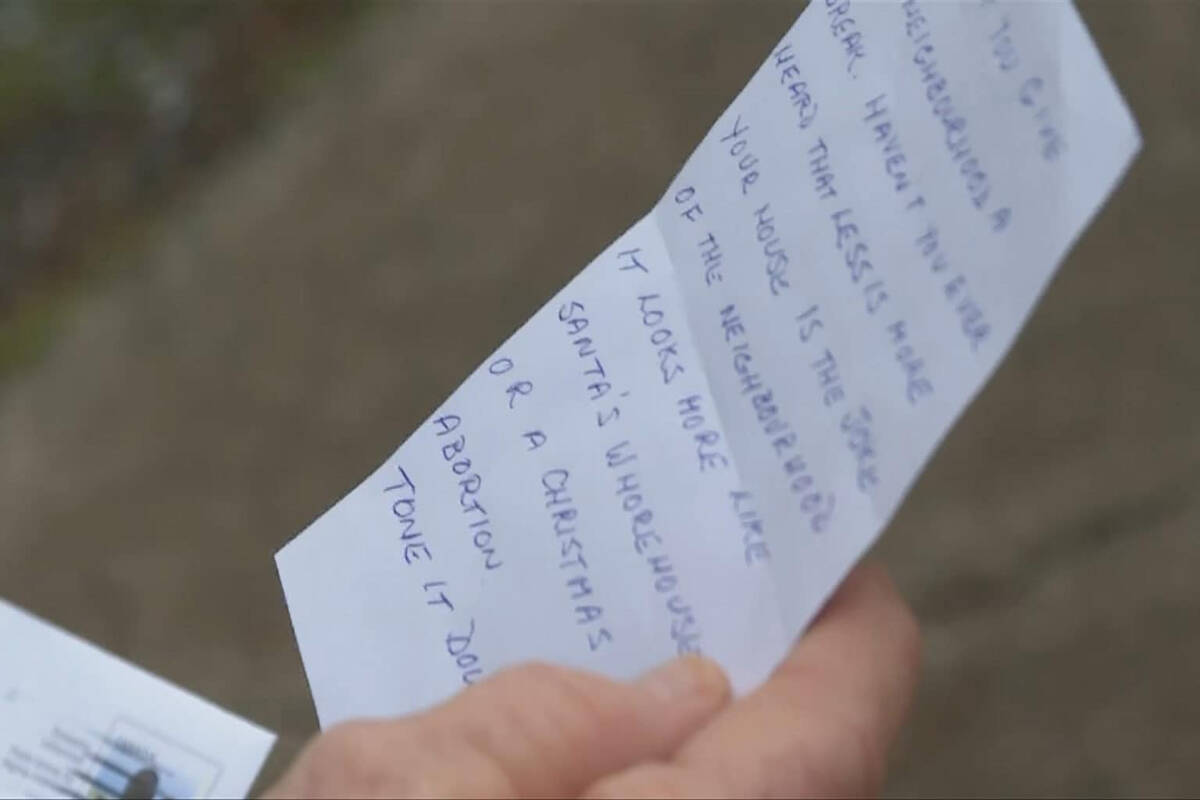 YOU GIVE
NEIGHBOURHOOD A
BREAK. HAVEN'T YOU EVER
HEARD THAT LESS IS MORE
YOUR HOUSE IS THE JOKE
OF THE NEIGHBOURHOOD
IT LOOKS MORE LIKE
SANTA'S WHOREHOUSE
OR A CHRISTMAS
ABORTION.
TONE IT